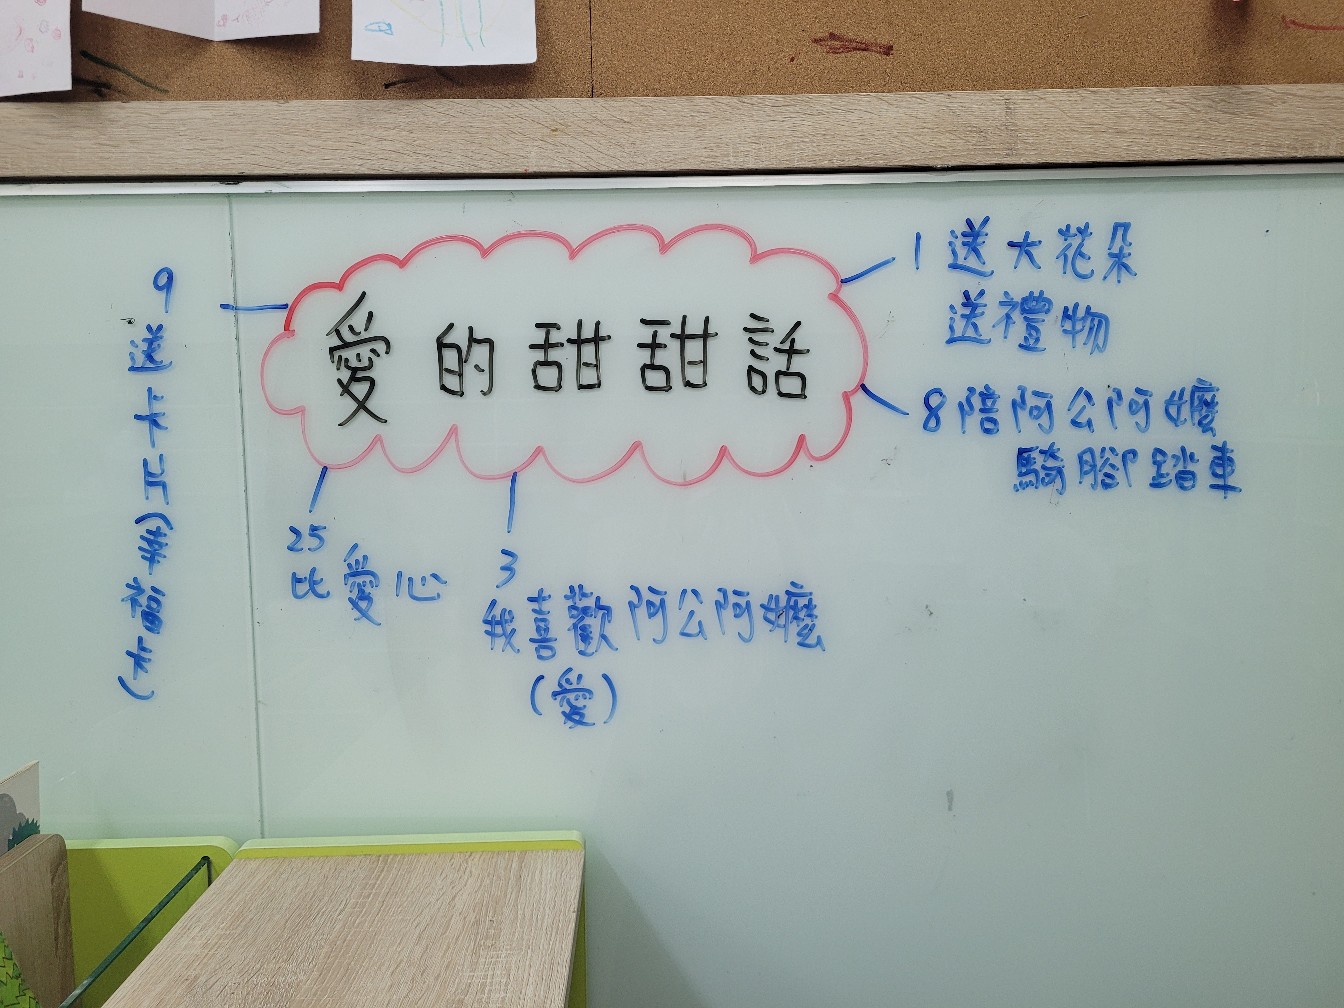 愛的甜甜話
1 送大花朵
送禮物
8 陪阿公阿嬤
騎腳踏車
9
送卡片(幸福卡)
25
比愛心
3
我喜歡阿公阿嬤
(愛)